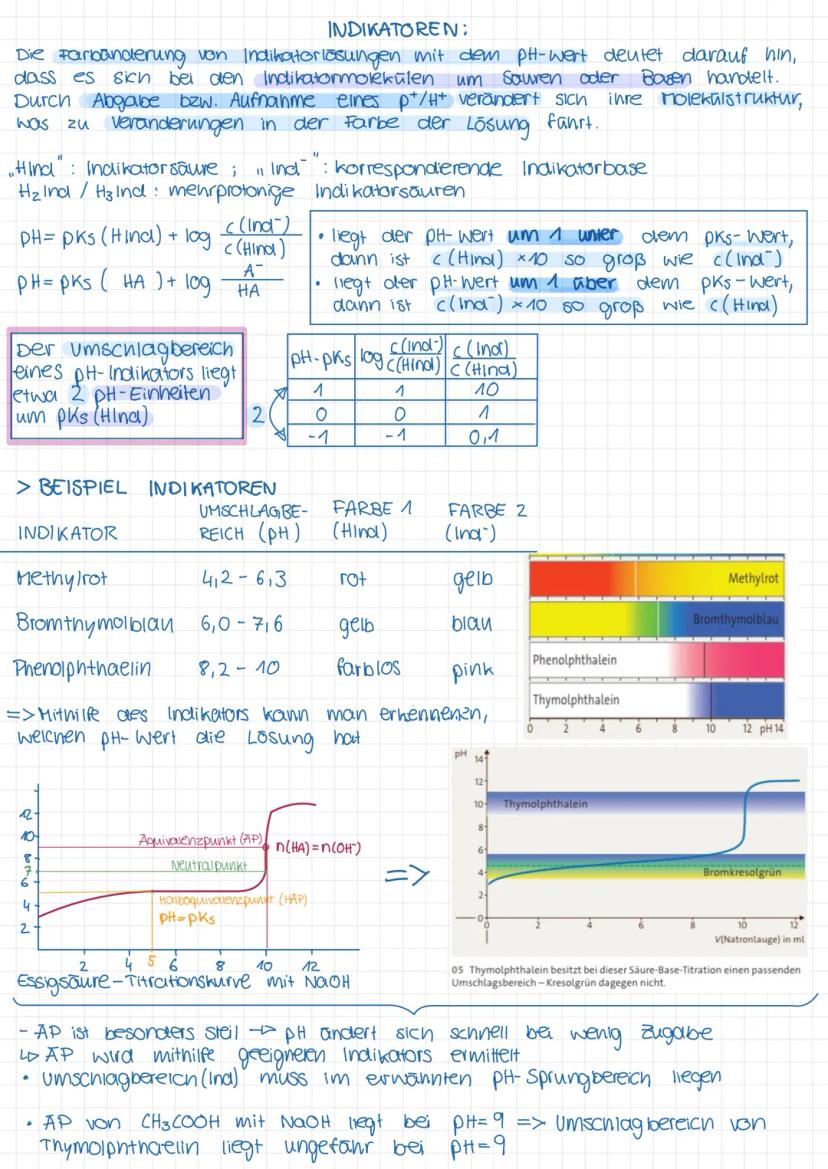 INDIKATOREN:
Die Farbänderung von Indikatorlösungen mit dem pH-Wert deutet darauf hin,
dass es sich bei den Indikatormolekülen um Säuren oder Basen handelt.
Durch Abgabe bzw. Aufnahme eines p⁺/H⁺ verändert sich ihre Molekülstruktur,
was zu Veränderungen in der Farbe der Lösung führt.
„HInd" : Indikatorsäure ; „Ind⁻" : korrespondierende Indikatorbase
H₂Ind / H₃Ind : mehrprotonige Indikatorsäuren
pH = pKs (HInd) + log c(Ind⁻) / c(HInd)
pH = pKs ( HA ) + log A⁻ / HA
• liegt der pH-Wert um 1 unter dem pKs-Wert,
dann ist c(HInd) ×10 so groß wie c(Ind⁻)
• liegt der pH-Wert um 1 über dem pKs-Wert,
dann ist c(Ind⁻) ×10 so groß wie c(HInd)
Der Umschlagbereich
eines pH-Indikators liegt
etwa 2 pH-Einheiten
um pKs (HInd)
pH-pKs log c(Ind⁻)/c(HInd) c(Ind)/c(HInd)
1 1 10
0 0 1
-1 -1 0,1
2
> BEISPIEL INDIKATOREN
UMSCHLAGBE- FARBE 1 FARBE 2
INDIKATOR REICH (pH) (HInd) (Ind⁻)
Methylrot 4,2 - 6,3 rot gelb
Bromthymolblau 6,0 - 7,6 gelb blau
Phenolphthaelin 8,2 - 10 farblos pink
Methylrot
Bromthymolblau
Phenolphthalein
Thymolphthalein
0 2 4 6 8 10 12 pH 14
=> Mithilfe des Indikators kann man erkennenen,
welchen pH-Wert die Lösung hat
12
10
8
7
6
4
2
Äquivalenzpunkt (ÄP)
n(HA)=n(OH⁻)
Neutralpunkt
Halbäquivalenzpunkt (HÄP)
pH=pKs
2 4 5 6 8 10 12
Essigsäure-Titrationskurve mit NaOH
=>
pH
14
12
10
8
6
4
2
0
Thymolphthalein
Bromkresolgrün
0 2 4 6 8 10 12
V(Natronlauge) in ml
05 Thymolphthalein besitzt bei dieser Säure-Base-Titration einen passenden
Umschlagsbereich – Kresolgrün dagegen nicht.
- ÄP ist besonders steil -> pH ändert sich schnell bei wenig Zugabe
↳ ÄP wird mithilfe geeigneten Indikators ermittelt
• Umschlagbereich (Ind) muss im erwähnten pH-Sprungbereich liegen
• ÄP von CH₃COOH mit NaOH liegt bei pH=9 => Umschlagbereich von
Thymolphthaelin liegt ungefähr bei pH=9